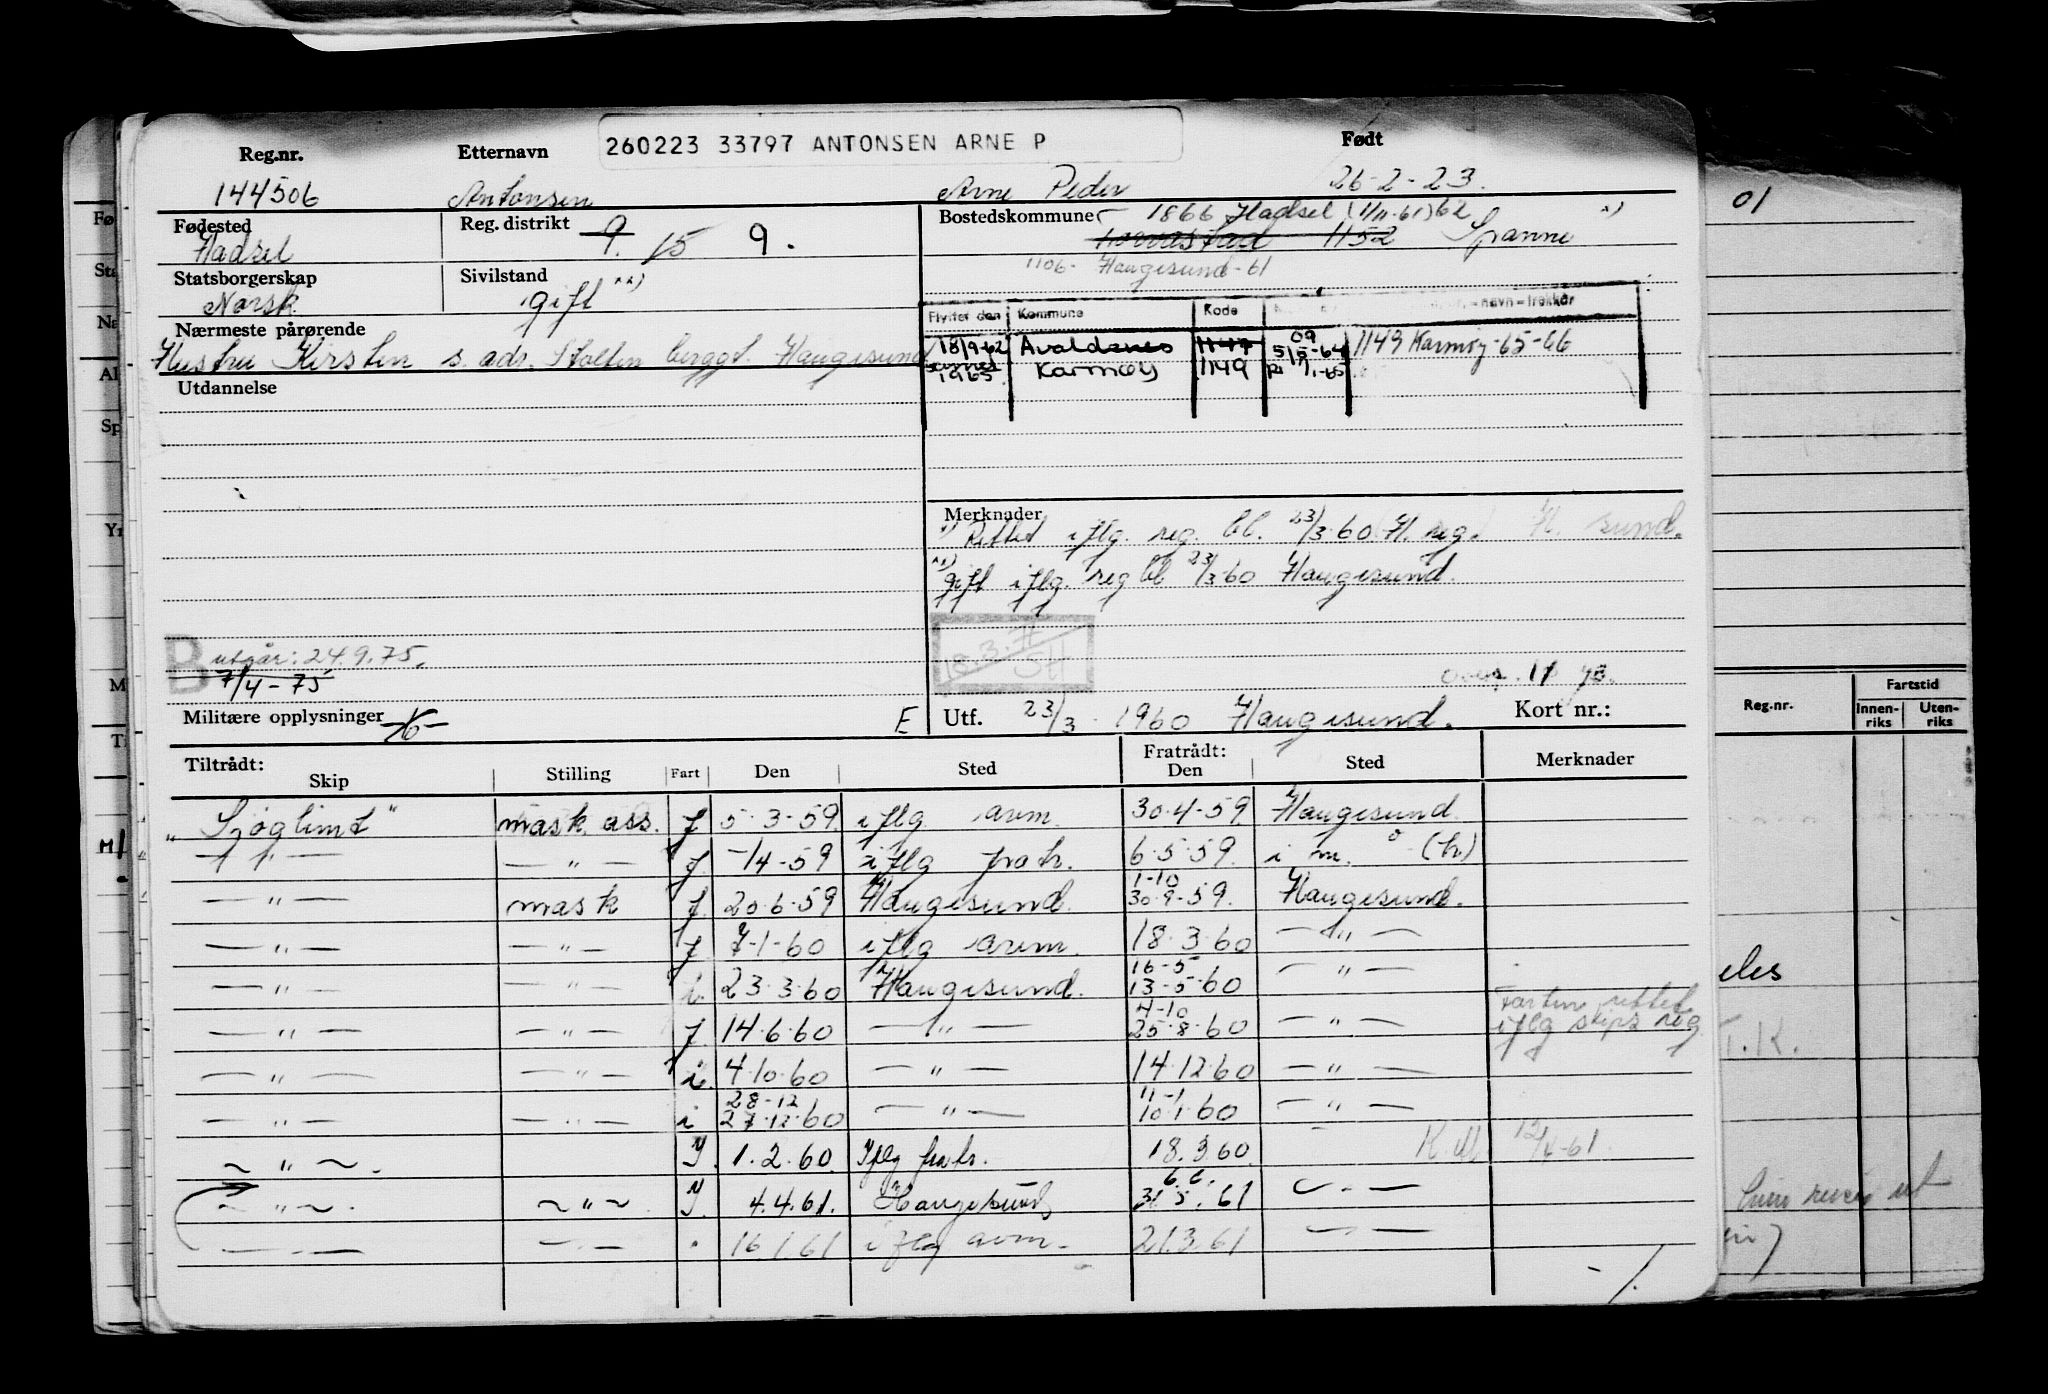 260223 33797 ANTONSEN ARNE P
Reg.nr. Etternavn Født
144506 Antonsen Arne Peder 26-2-23.
Fødested Reg. distrikt 9. 15 9.
Hadsel
Bostedskommune 1866 Hadsel (1/11-61) 62 x)
1152 Spanne
1106- Haugesund-61
Statsborgerskap Sivilstand xx)
Norsk gift
Nærmeste pårørende
Hustru Kirsten s. adr. Stolten berggt. Haugesund
Flyttet den Kommune Kode - navn - trekker
18/9-62 Avaldsnes 1147 09 5/5-64 1149 Karmøy-65-66
1965 Karmøy 1149 1/1-65
Utdannelse
Merknader
x) Rettet iflg. reg. bl. 23/3.60 H. reg. H. sund.
xx) gift iflg. reg bl 23/3-60 Haugesund.
B utgår: 24.9.75.
7/4-75
18.3.
Militære opplysninger E
Utf. 23/3 - 1960 Haugesund. Kort nr.:
Tiltrådt: Fratrådt:
Skip Stilling Fart Den Sted Den Sted Merknader
"Sjøglimt" mask ass. f 5-3-59 iflg avm. 30.4-59 Haugesund
— " — — " — f. -/4-59 iflg fratr. 6.5.59. i m. (tr)
— " — mask f. 20.6-59 Haugesund. 1-10 30.9-59. Haugesund.
— " — — " — f. 7-1-60 iflg avm. 18.3.60 — " —
— " — — " — i. 23.3.60 Haugesund. 16-5 13-5-60 — " —
— " — — " — f. 14.6.60 — " — 4-10 25.8.60 — " — Farten rettet iflg skips reg
— " — — " — i. 4.10.60 — " — 14.12.60 — " —
— " — — " — i 28-12 27.12.60 — " — 11-1 10.1.60 — " —
~ " ~. Y. 1.2.60. Iflg fratr. 18.3.60. 12/4-61.
~ " ~. ~ " ~ Y. 4.4.61. Haugesund 6.6. 31.5.61 — " —
— " — — " — " 16.1.61 iflg avm. 21.3.61 — " —
01
Reg.nr. Fartstid
Innenriks Utenriks
T.K.